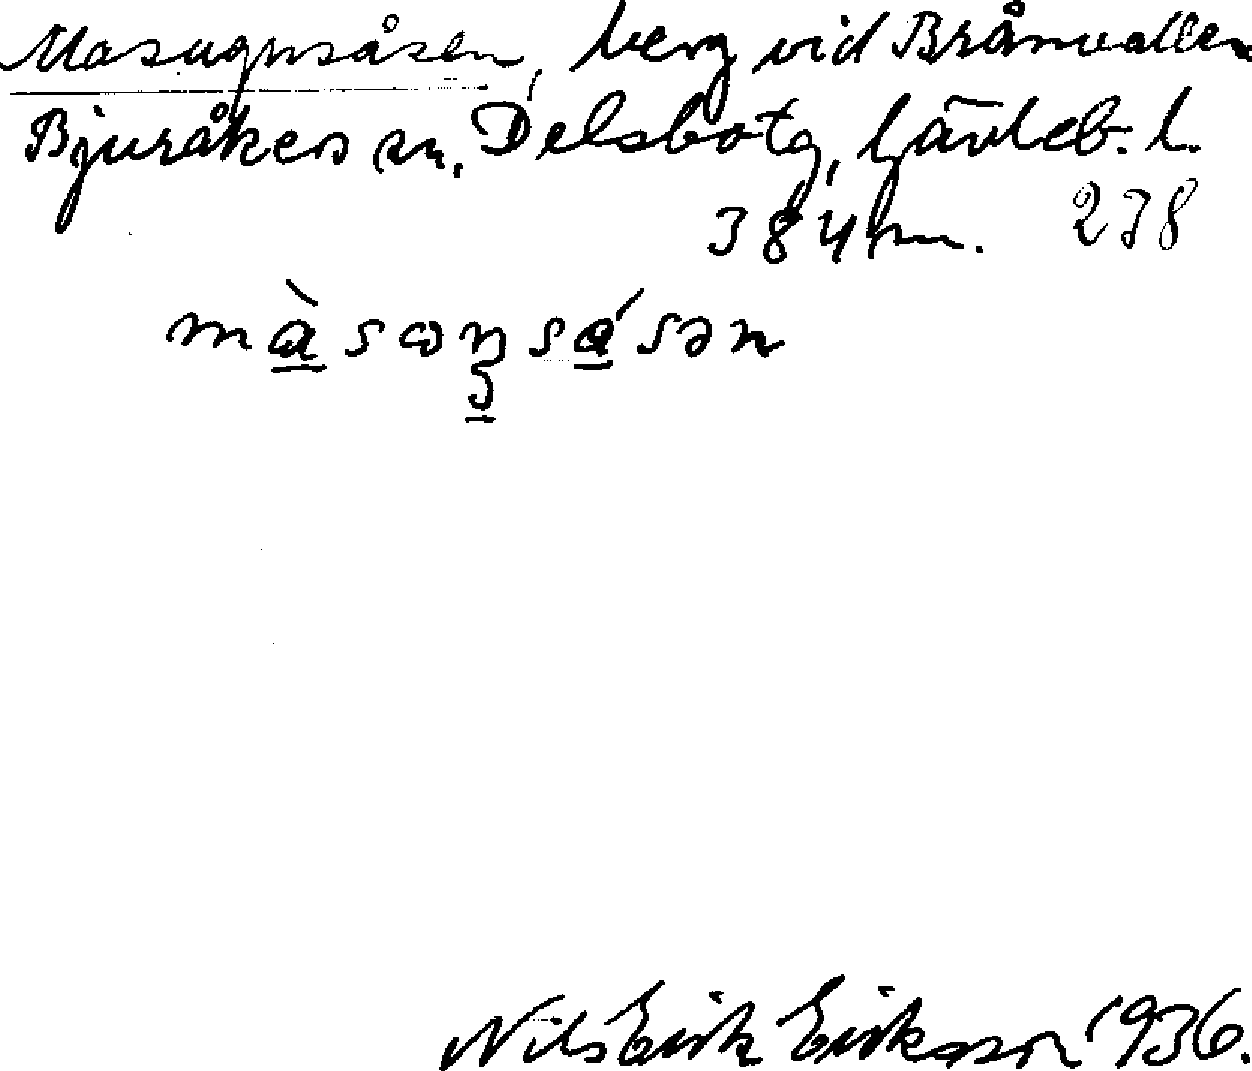 Masugnsåsen, berg vid Brånvallen
Bjuråkers sn, Delsbo tg, Gävleb. l.
384 m. 238
màsωŋsåsən
Nils Erik Eriksson 1936.